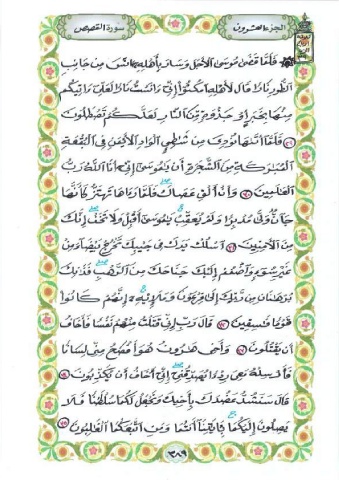 الجزء العشرون
سورة القصص
فلما قضى موسى الأجل وسار بأهله ءانس من جانب
الطور نارا قال لأهله امكثوا إني ءانست نارا لعلي ءاتيكم
منها بخبر أو جذوة من النار لعلكم تصطلون
٢٩ فلما أتىها نودي من شطئ الواد الأيمن في البقعة
المبركة من الشجرة أن يموسى إني أنا الله رب
العلمين ٣٠ وأن ألق عصاك فلما رءاها تهتز كأنها
جان ولى مدبرا ولم يعقب يموسى أقبل ولا تخف إنك
من الأمنين ٣١ اسلك يدك في جيبك تخرج بيضاء من
غير سوء واضمم إليك جناحك من الرهب فذنك
برهنان من ربك إلى فرعون وملإيه إنهم كانوا
قوما فسقين ٣٢ قال رب إني قتلت منهم نفسا فأخاف
أن يقتلون ٣٣ وأخي هرون هو أفصح مني لسانا
فأرسله معي ردءا يصدقني إني أخاف أن يكذبون ٣٤
قال سنشد عضدك بأخيك ونجعل لكما سلطنا فلا
يصلون إليكما بأيتنا أنتما ومن اتبعكما الغلبون ٣٥
٣٨٩